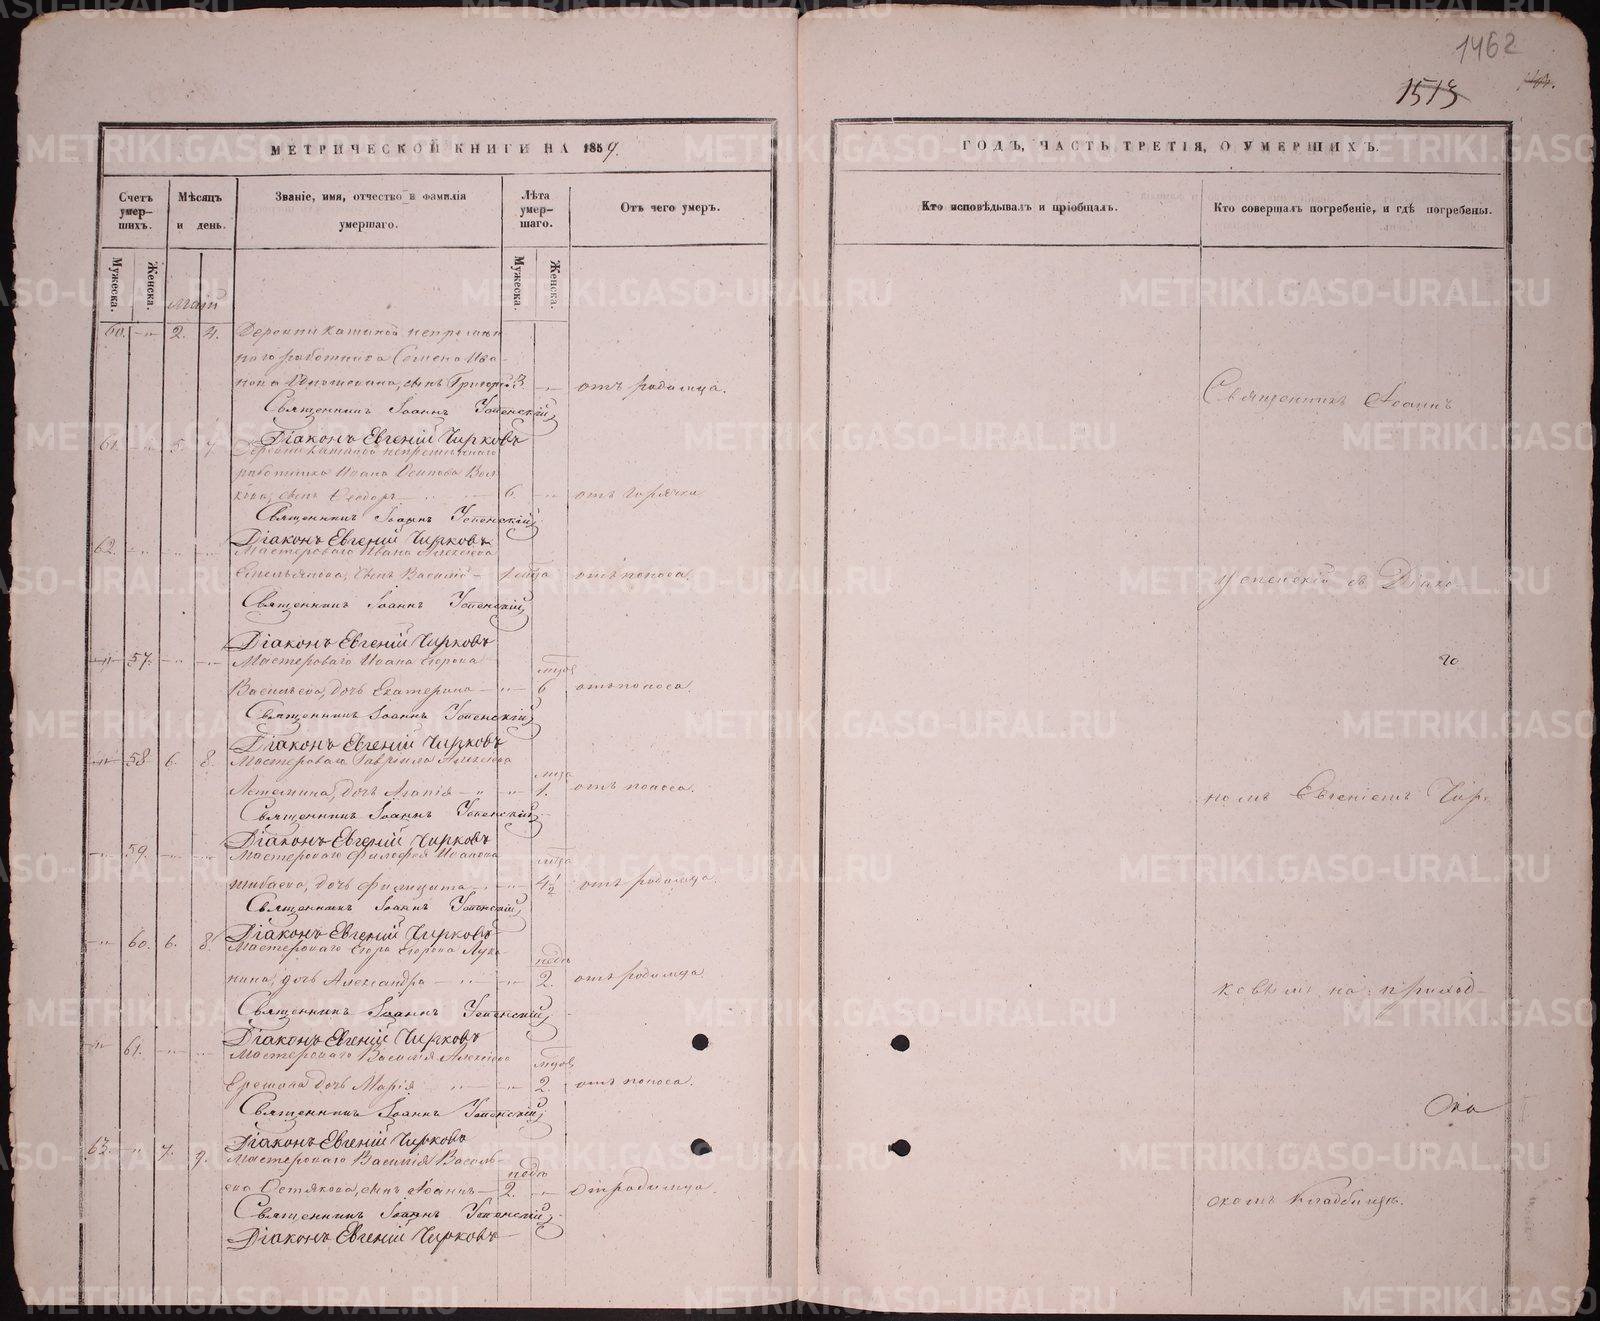 1462
1513
МЕТРИЧЕСКОЙ КНИГИ НА 1859.
ГОДЪ, ЧАСТЬ ТРЕТІЯ, О УМЕРШИХЪ.
Счетъ умер-шихъ.
Мѣсяцъ и день.
Званіе, имя, отчество и фамилія умершаго.
Лѣта умер-шаго.
Отъ чего умеръ.
Кто исповѣдывалъ и пріобщалъ.
Кто совершалъ погребеніе, и гдѣ погребены.
Мужеска.
Женска.
Мужеска.
Женска.
Май
60. 2. 4. Деревни
наго работника Семена Ива-
нова сынъ Григорій 3. отъ родимца.
Священникъ Іоаннъ Успенскій
Діаконъ Евгеній Чирковъ
61. 5. 7. Деревни непремѣннаго
работника Ивана Осипова Вол-
кова, сынъ Ѳеодоръ 6. отъ горячки
Священникъ Іоаннъ Успенскій
Діаконъ Евгеній Чирковъ
62. Мастероваго Ивана Алексѣева
Емельянова, сынъ Василій 1 мца отъ поноса.
Священникъ Іоаннъ Успенскій
Діаконъ Евгеній Чирковъ
57. Мастероваго Ивана Егорова
Васильева, дочь Екатерина 6 отъ поноса.
Священникъ Іоаннъ Успенскій
Діаконъ Евгеній Чирковъ
58. 6. 8. Мастероваго Гавріила Алексѣева
дочь Агапія 1. отъ поноса.
Священникъ Іоаннъ Успенскій
Діаконъ Евгеній Чирковъ
59. Мастероваго Филофея Иванова
дочь Филицата 4½ отъ родимца.
Священникъ Іоаннъ Успенскій
Діаконъ Евгеній Чирковъ
60. 6. 8. Мастероваго Егора Егорова Лука-
нина, дочь Александра 2. отъ родимца.
Священникъ Іоаннъ Успенскій
Діаконъ Евгеній Чирковъ
61. Мастероваго Василія Алексѣева
дочь Марія 2. отъ поноса.
Священникъ Іоаннъ Успенскій
Діаконъ Евгеній Чирковъ
63. 7. 9. Мастероваго Василія Василь-
ева сынъ Іоаннъ 2. отъ родимца.
Священникъ Іоаннъ Успенскій
Діаконъ Евгеній Чирковъ
Священникъ Іоаннъ
Успенскій съ Діако-
номъ Евгеніемъ Чир-
ковымъ на приход-
скомъ кладбищѣ.
METRIKI.GASO-URAL.RU